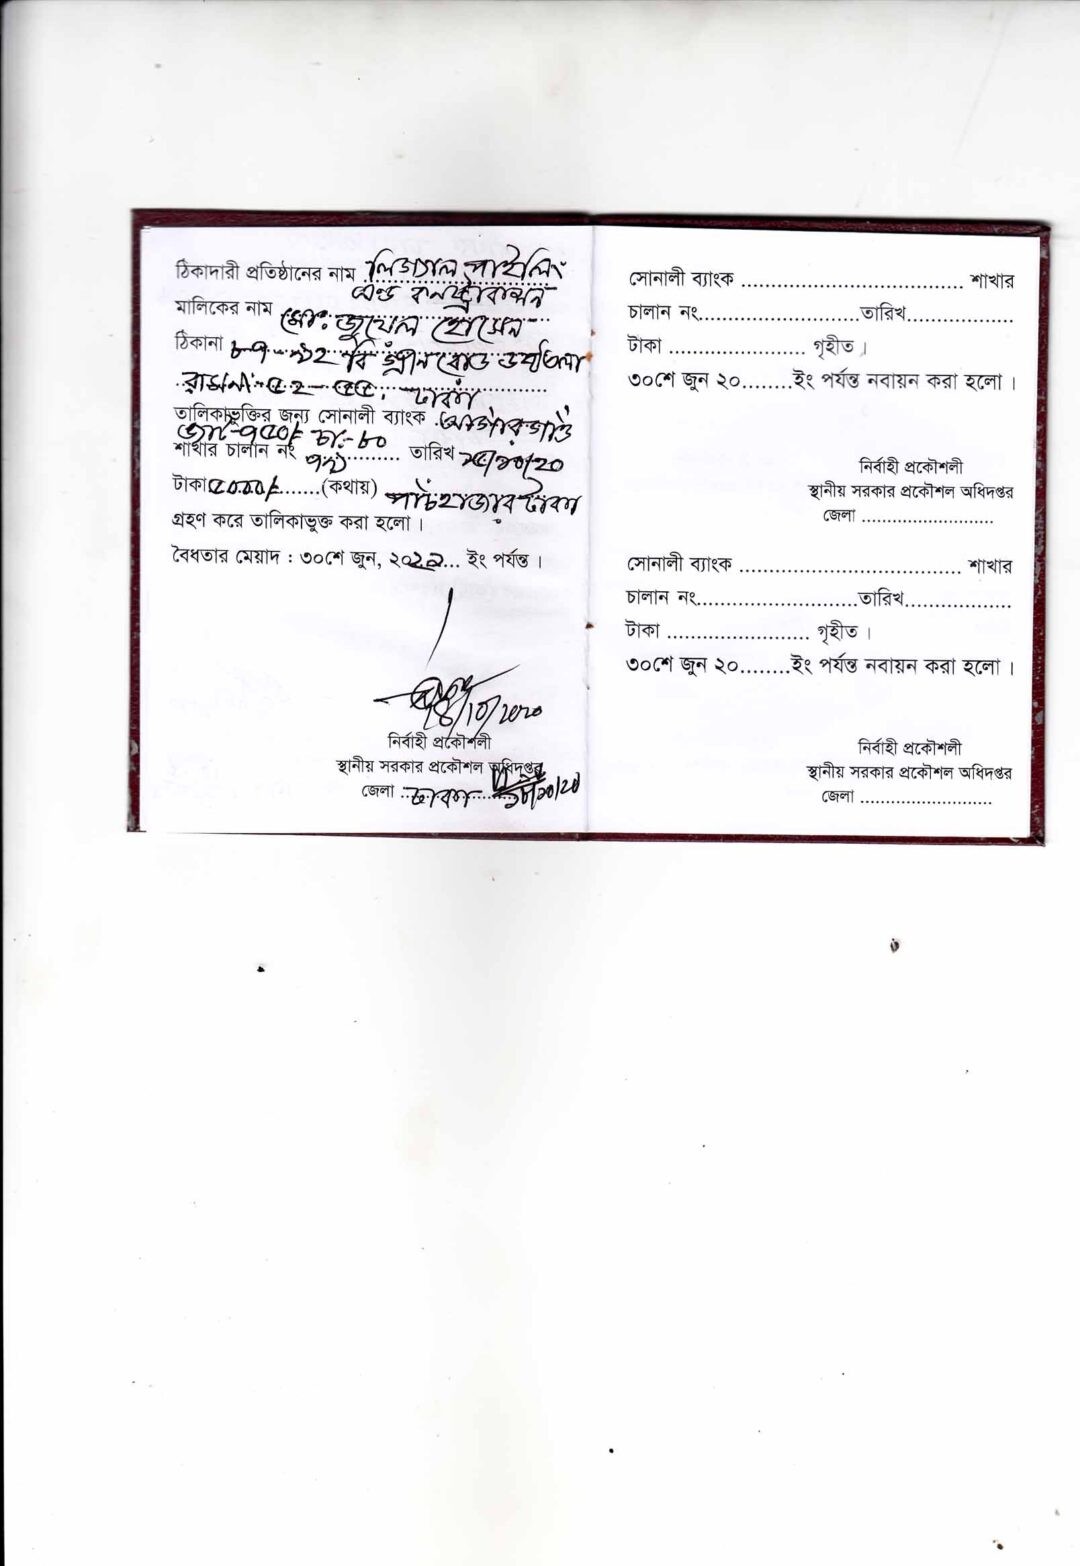 ঠিকাদারী প্রতিষ্ঠানের নাম পাইলিং
এন্ড কনস্ট্রাকশন
মালিকের নাম মো: জুয়েল হোসেন
ঠিকানা ৮৭-৯২ বি গ্রীন রোড
ঢাকা
তালিকাভুক্তির জন্য সোনালী ব্যাংক আগারগাঁও
জা-৭৫০/- চা:-৮০
শাখার চালান নং ৭৯ তারিখ ১৫/১০/২০
টাকা ৫০০০/-.......(কথায়) পাঁচ হাজার টাকা
গ্রহণ করে তালিকাভুক্ত করা হলো ।
বৈধতার মেয়াদ : ৩০শে জুন, ২০২১... ইং পর্যন্ত ।
/10/2020
নির্বাহী প্রকৌশলী
স্থানীয় সরকার প্রকৌশল অধিদপ্তর
জেলা ..ঢাকা /১০/২০
সোনালী ব্যাংক .................................... শাখার
চালান নং..........................তারিখ.................
টাকা ...................... গৃহীত ।
৩০শে জুন ২০........ইং পর্যন্ত নবায়ন করা হলো ।
নির্বাহী প্রকৌশলী
স্থানীয় সরকার প্রকৌশল অধিদপ্তর
জেলা ........................
সোনালী ব্যাংক .................................... শাখার
চালান নং..........................তারিখ.................
টাকা ....................... গৃহীত ।
৩০শে জুন ২০........ইং পর্যন্ত নবায়ন করা হলো ।
নির্বাহী প্রকৌশলী
স্থানীয় সরকার প্রকৌশল অধিদপ্তর
জেলা ........................